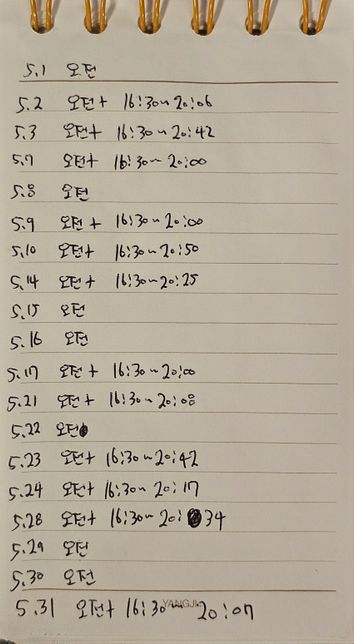 5.1 오전
5.2 오전+ 16:30~20:06
5.3 오전+ 16:30~20:42
5.7 오전+ 16:30~20:00
5.8 오전
5.9 오전+ 16:30~20:00
5.10 오전+ 16:30~20:50
5.14 오전+ 16:30~20:25
5.15 오전
5.16 오전
5.17 오전+ 16:30~20:00
5.21 오전+ 16:30~20:08
5.22 오전
5.23 오전+ 16:30~20:42
5.24 오전+ 16:30~20:17
5.28 오전+ 16:30~20:34
5.29 오전
5.30 오전
5.31 오전+ 16:30~20:07